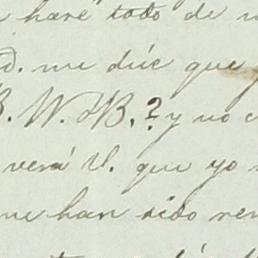 haré todo de
D. me dice que
B. W. & B.? y no
verá V. que yo
me han sido